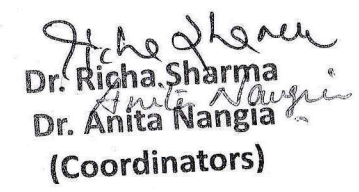 Richa Sharma
Dr. Richa Sharma
Anita Nangia
Dr. Anita Nangia
(Coordinators)